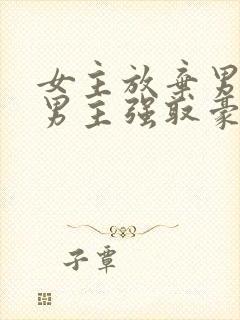 女主放弃男
男主强取豪
子覃